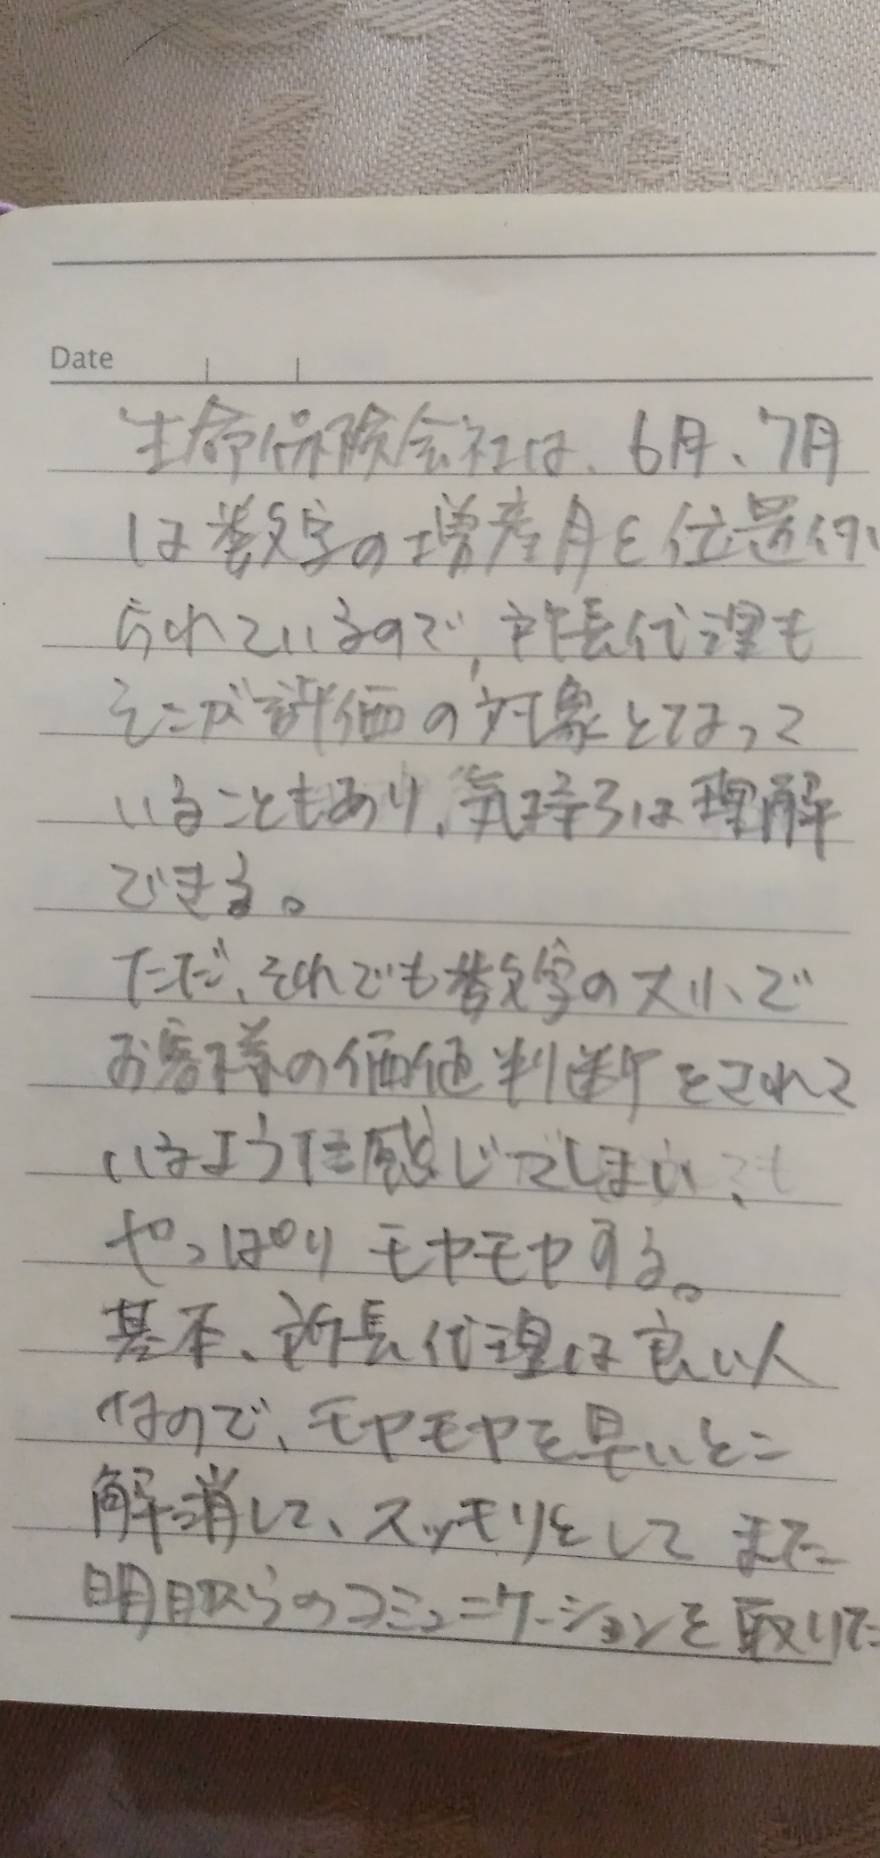 Date
生命保険会社は、6月、7月
は数字の増産月と位置付け
られているので、所長代理も
そこが評価の対象となって
いることもあり、気持ちは理解
できる。
ただ、それでも数字の大小で
お客様の価値判断をされて
いるように感じてしまい、
やっぱりモヤモヤする。
基本、所長代理は良い人
なので、モヤモヤを早いとこ
解消して、スッキリとしてまた
明日からのコミュニケーションを取りた